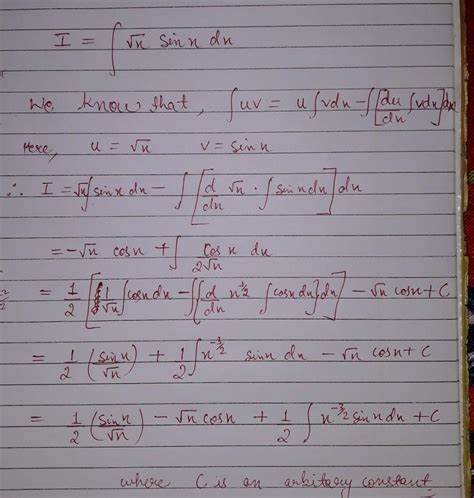 I = ∫ √x sin x dx
We know that, ∫uv = u∫vdx - ∫[du/dx ∫vdx]dx
Here, u = √x v = sin x
∴ I = √x∫sin x dx - ∫[d/dx √x · ∫sin x dx] dx
= -√x cos x + ∫ cos x/2√x dx
= 1/2 [1/√x ∫cos x dx - ∫[d/dx x^1/2 ∫cos x dx] dx] - √x cos x + C
= 1/2 (sin x/√x) + 1/2 ∫x^-3/2 sin x dx - √x cos x + C
= 1/2 (sin x/√x) - √x cos x + 1/2 ∫ x^-3/2 sin x dx + C
where C is an arbitary constant